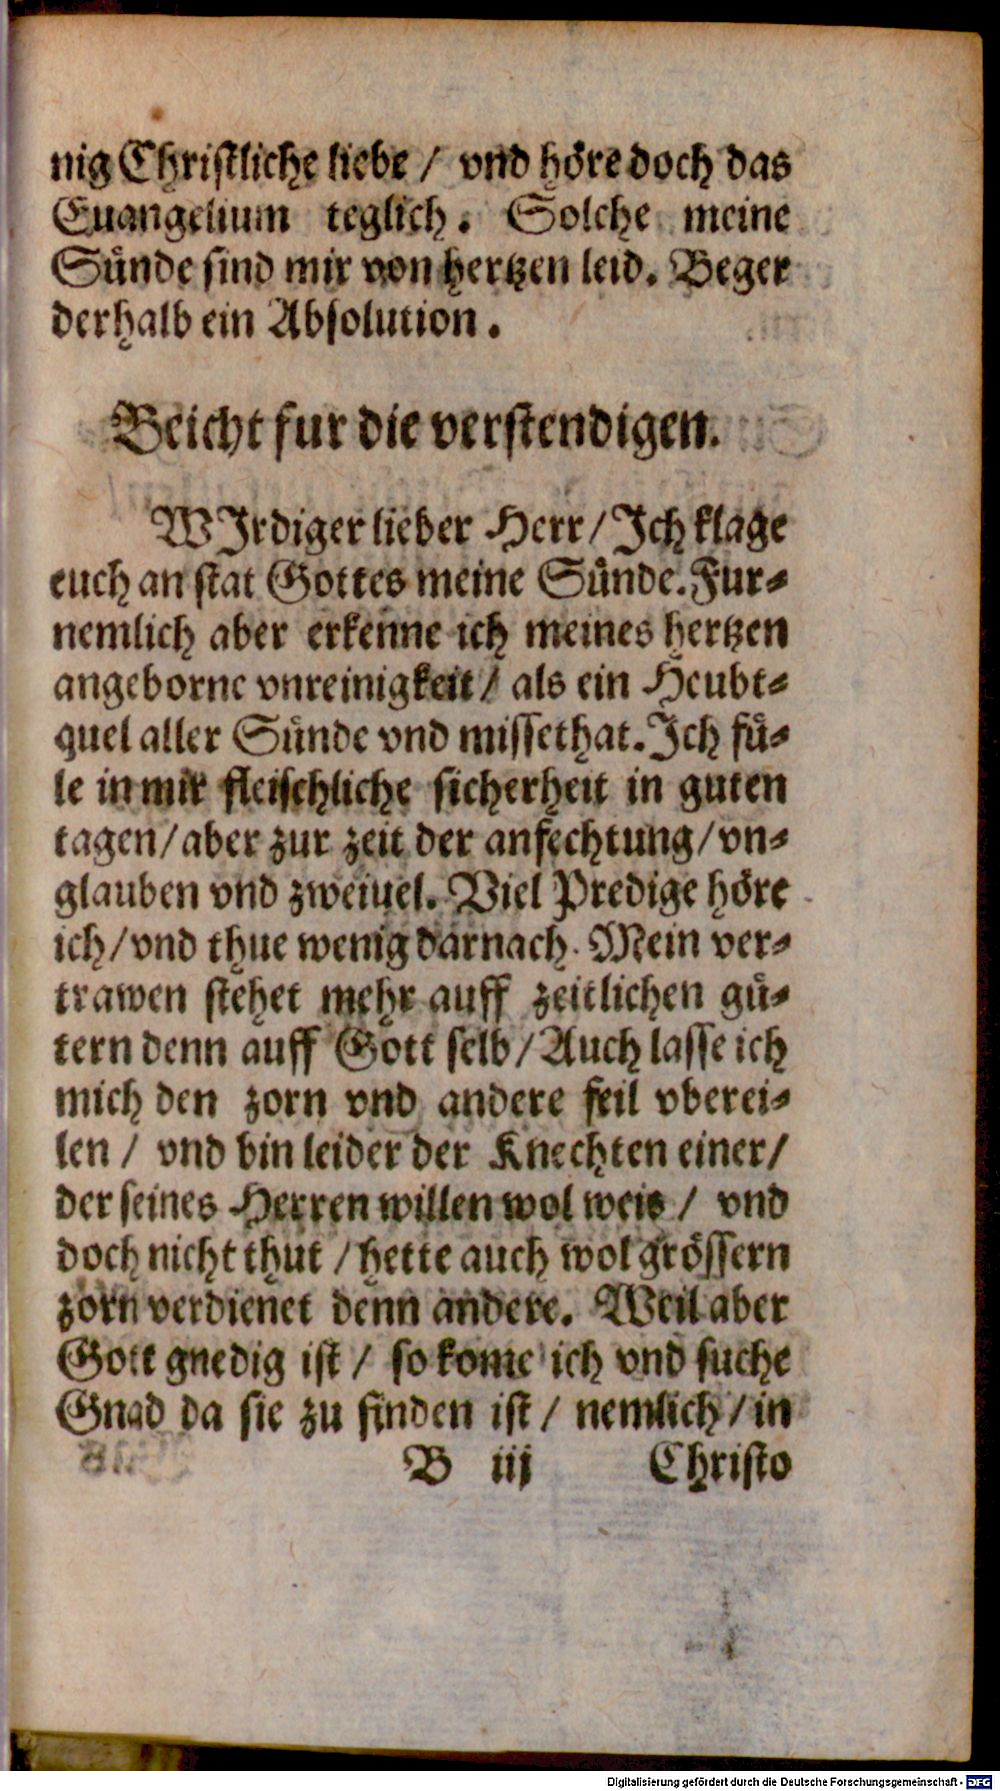 nig Christliche liebe / vnd höre doch das
Euangelium teglich. Solche meine
Sünde sind mir von hertzen leid. Beger
derhalb ein Absolution.
Beicht fur die verstendigen.
WIrdiger lieber Herr / Ich klage
euch an stat Gottes meine Sünde. Fur-
nemlich aber erkenne ich meines hertzen
angeborne vnreinigkeit / als ein Heubt-
quel aller Sünde vnd missethat. Ich fü-
le in mir fleischliche sicherheit in guten
tagen / aber zur zeit der anfechtung / vn-
glauben vnd zweiuel. Viel Predige höre
ich / vnd thue wenig darnach. Mein ver-
trawen stehet mehr auff zeitlichen gü-
tern denn auff Gott selb / Auch lasse ich
mich den zorn vnd andere feil vberei-
len / vnd bin leider der Knechten einer /
der seines Herren willen wol weis / vnd
doch nicht thut / hette auch wol grössern
zorn verdienet denn andere. Weil aber
Gott gnedig ist / so kome ich vnd suche
Gnad da sie zu finden ist / nemlich / in
B iij Christo
Digitalisierung gefördert durch die Deutsche Forschungsgemeinschaft - DFG